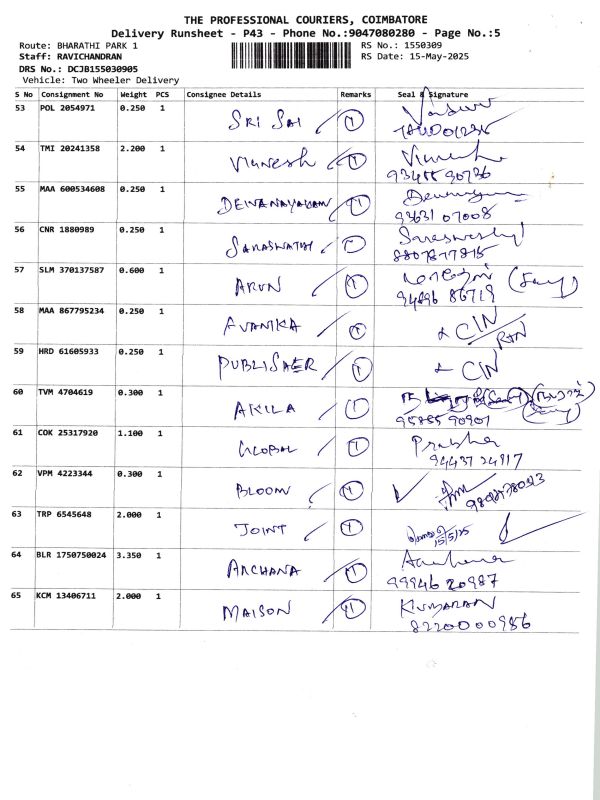 THE PROFESSIONAL COURIERS, COIMBATORE
Delivery Runsheet - P43 - Phone No.:9047080280 - Page No.:5
Route: BHARATHI PARK 1 RS No.: 1550309
Staff: RAVICHANDRAN RS Date: 15-May-2025
DRS No.: DCJB155030905
Vehicle: Two Wheeler Delivery
S No Consignment No Weight PCS Consignee Details Remarks Seal & Signature
53 POL 2054971 0.250 1 SRI SAI 1
54 TMI 20241358 2.200 1 VIGNESH 1
93455 90736
55 MAA 600534608 0.250 1 DEIVANAYAGAM 1
93631 07008
56 CNR 1880989 0.250 1 SARASWATHI
8807877815
57 SLM 370137587 0.600 1 ARUN 1
94896 86719
58 MAA 867795234 0.250 1 AVANIKA 1 CIN
59 HRD 61605933 0.250 1 PUBLISAER 1 CIN
60 TVM 4704619 0.300 1 AKILA 1
95855 90901
61 COK 25317920 1.100 1 GLOBAL 1 Prabha
94437 24917
62 VPM 4223344 0.300 1 BLOOM 1
63 TRP 6545648 2.000 1 JOINT 1
15/5/25
64 BLR 1750750024 3.350 1 ARCHANA 1
99946 20987
65 KCM 13406711 2.000 1 MAISON 1 KUMARAN
8220000986